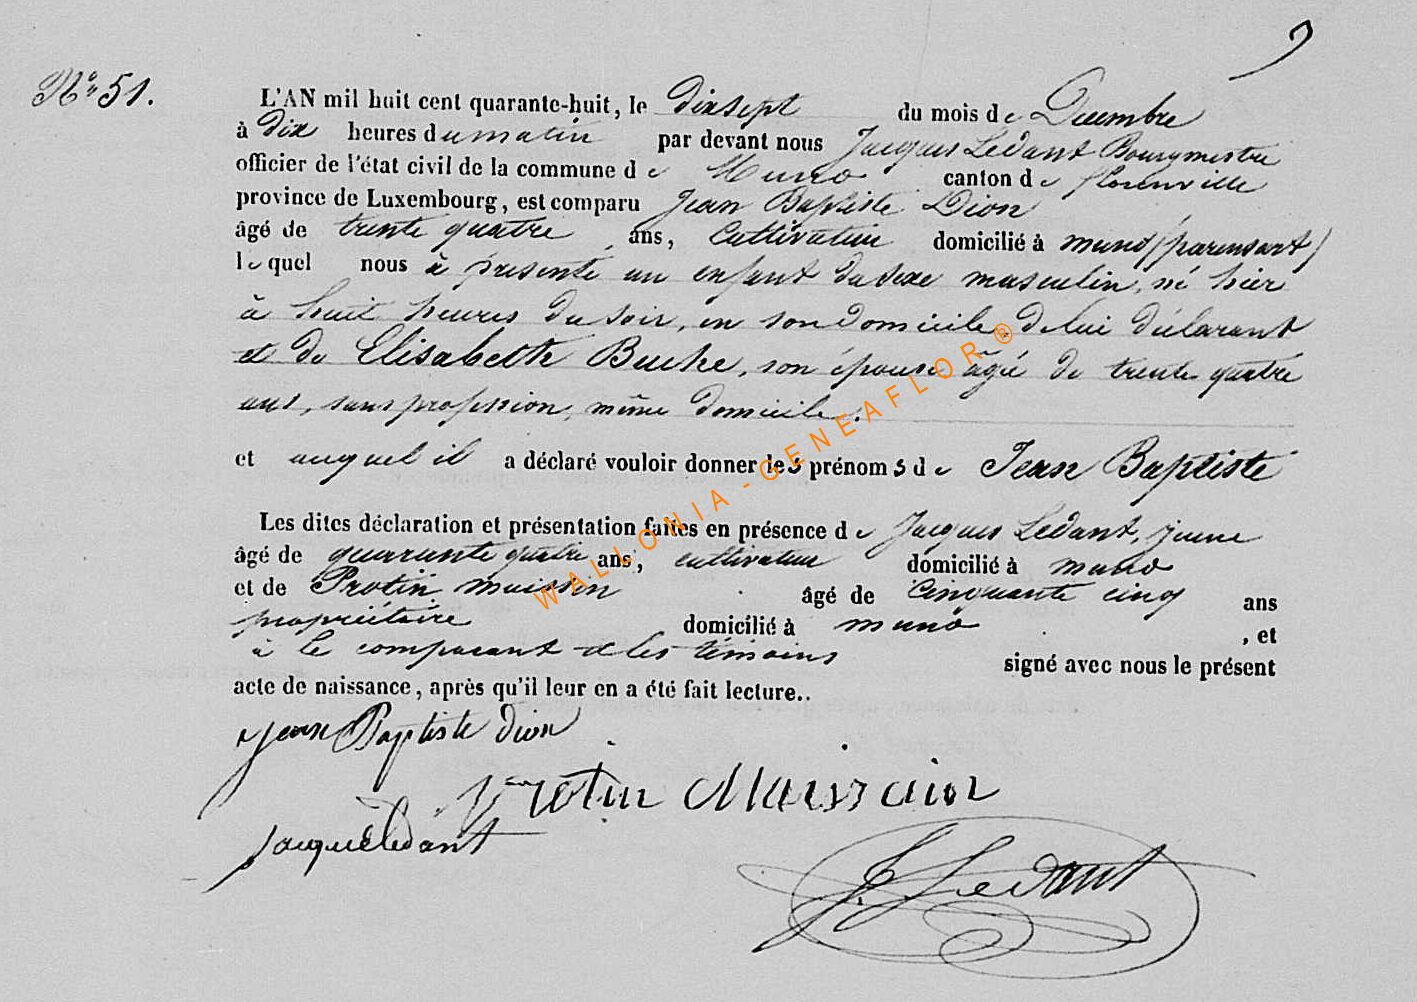 9
N° 51.
L'AN mil huit cent quarante-huit, le dix sept du mois de Decembre
à dix heures du matin par devant nous Jacques Ledant Bourgmestre
officier de l'état civil de la commune de Muno canton de florenville
province de Luxembourg, est comparu Jean Baptiste Dion
âgé de trente quatre ans, Cultivateur domicilié à muno (parensart)
lequel nous à présenté un enfant du sexe masculin, né hier
à huit heures du soir, en son domicile, de lui déclarant
et de Elisabeth Buche, son épouse âgée de trente quatre
ans, sans profession, même domicile.
et auquel il a déclaré vouloir donner les prénoms de Jean Baptiste
Les dites déclaration et présentation faites en présence de Jacques Ledant, jeune
âgé de quarante quatre ans, cultivateur domicilié à muno
et de Protin maissin âgé de Cinquante cinq ans
propriétaire domicilié à muno, et
à le comparant et les témoins signé avec nous le présent
acte de naissance, après qu'il leur en a été fait lecture..
Jean Baptiste Dion
Maissain
Jacque Ledant
J. Ledant
WALLONIA-GENEAFLOR®